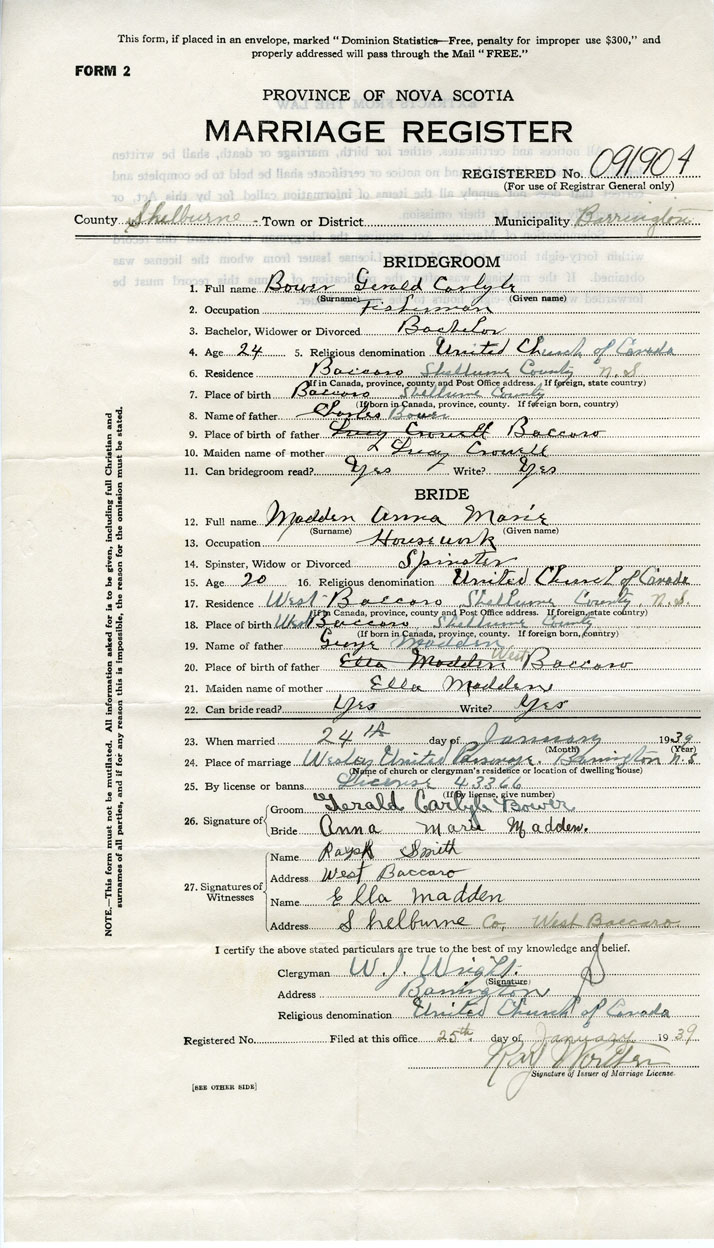 This form, if placed in an envelope, marked "Dominion Statistics—Free, penalty for improper use $300," and
properly addressed will pass through the Mail "FREE."
FORM 2
PROVINCE OF NOVA SCOTIA
MARRIAGE REGISTER
REGISTERED No. 091904
(For use of Registrar General only)
County Shelburne - Town or District Municipality Barrington
BRIDEGROOM
1. Full name Bower Gerald Carlyle
(Surname) (Given name)
2. Occupation Fisherman
3. Bachelor, Widower or Divorced Bachelor
4. Age 24 5. Religious denomination United Church of Canada
6. Residence Baccaro Shelburne County N.S
(If in Canada, province, county and Post Office address. If foreign, state country)
7. Place of birth Baccaro Shelburne County
(If born in Canada, province, county. If foreign born, county)
8. Name of father Bower
9. Place of birth of father Lucy Crowell Baccaro
10. Maiden name of mother Lucy Crowell
11. Can bridegroom read? Yes Write? Yes
BRIDE
12. Full name Madden Anna Marie
(Surname) (Given name)
13. Occupation Housework
14. Spinster, Widow or Divorced Spinster
15. Age 20 16. Religious denomination United Church of Canada
17. Residence West Baccaro Shelburne County, N.S.
(If in Canada, province, county and Post Office address. If foreign, state country)
18. Place of birth West Baccaro Shelburne County
(If born in Canada, province, county. If foreign born, country)
19. Name of father George Madden
20. Place of birth of father Ella Madden West Baccaro
21. Maiden name of mother Ella Madden
22. Can bride read? Yes Write? Yes
23. When married 24th day of January 1939
(Month) (Year)
24. Place of marriage Wesley United Parsonage, Barrington N.S
(Name of church or clergyman's residence or location of dwelling house)
25. By license or banns License 43366
(If by license, give number)
26. Signature of
Groom Gerald Carlyle Bower
Bride Anna Marie Madden.
27. Signatures of Witnesses
Name Ralph Smith
Address West Baccaro
Name Ella Madden
Address Shelburne Co, West Baccaro
I certify the above stated particulars are true to the best of my knowledge and belief.
Clergyman W. J. Wright.
(Signature)
Address Barrington
Religious denomination United Church of Canada
Registered No. Filed at this office 25th day of January 1939
Signature of Issuer of Marriage License.
[SEE OTHER SIDE]
NOTE.—This form must not be mutilated. All information asked for is to be given, including full Christian and
surnames of all parties, and if for any reason this is impossible, the reason for the omission must be stated.